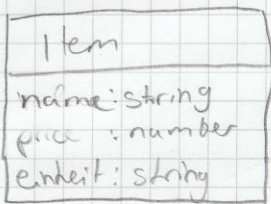 Item
name: string
price : number
einheit: string